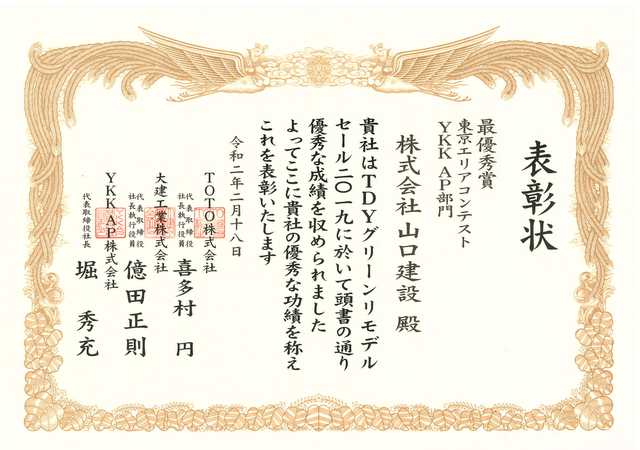 表彰状
最優秀賞
東京エリアコンテスト
YKK AP部門
株式会社 山口建設 殿
貴社はTDYグリーンリモデル
セール二〇一九に於いて頭書の通り
優秀な成績を収められました
よってここに貴社の優秀な功績を称え
これを表彰いたします
令和二年二月十八日
TOTO株式会社
代表取締役
社長執行役員
喜多村 円
大建工業株式会社
代表取締役
社長執行役員
億田正則
YKK AP株式会社
代表取締役社長
堀 秀充